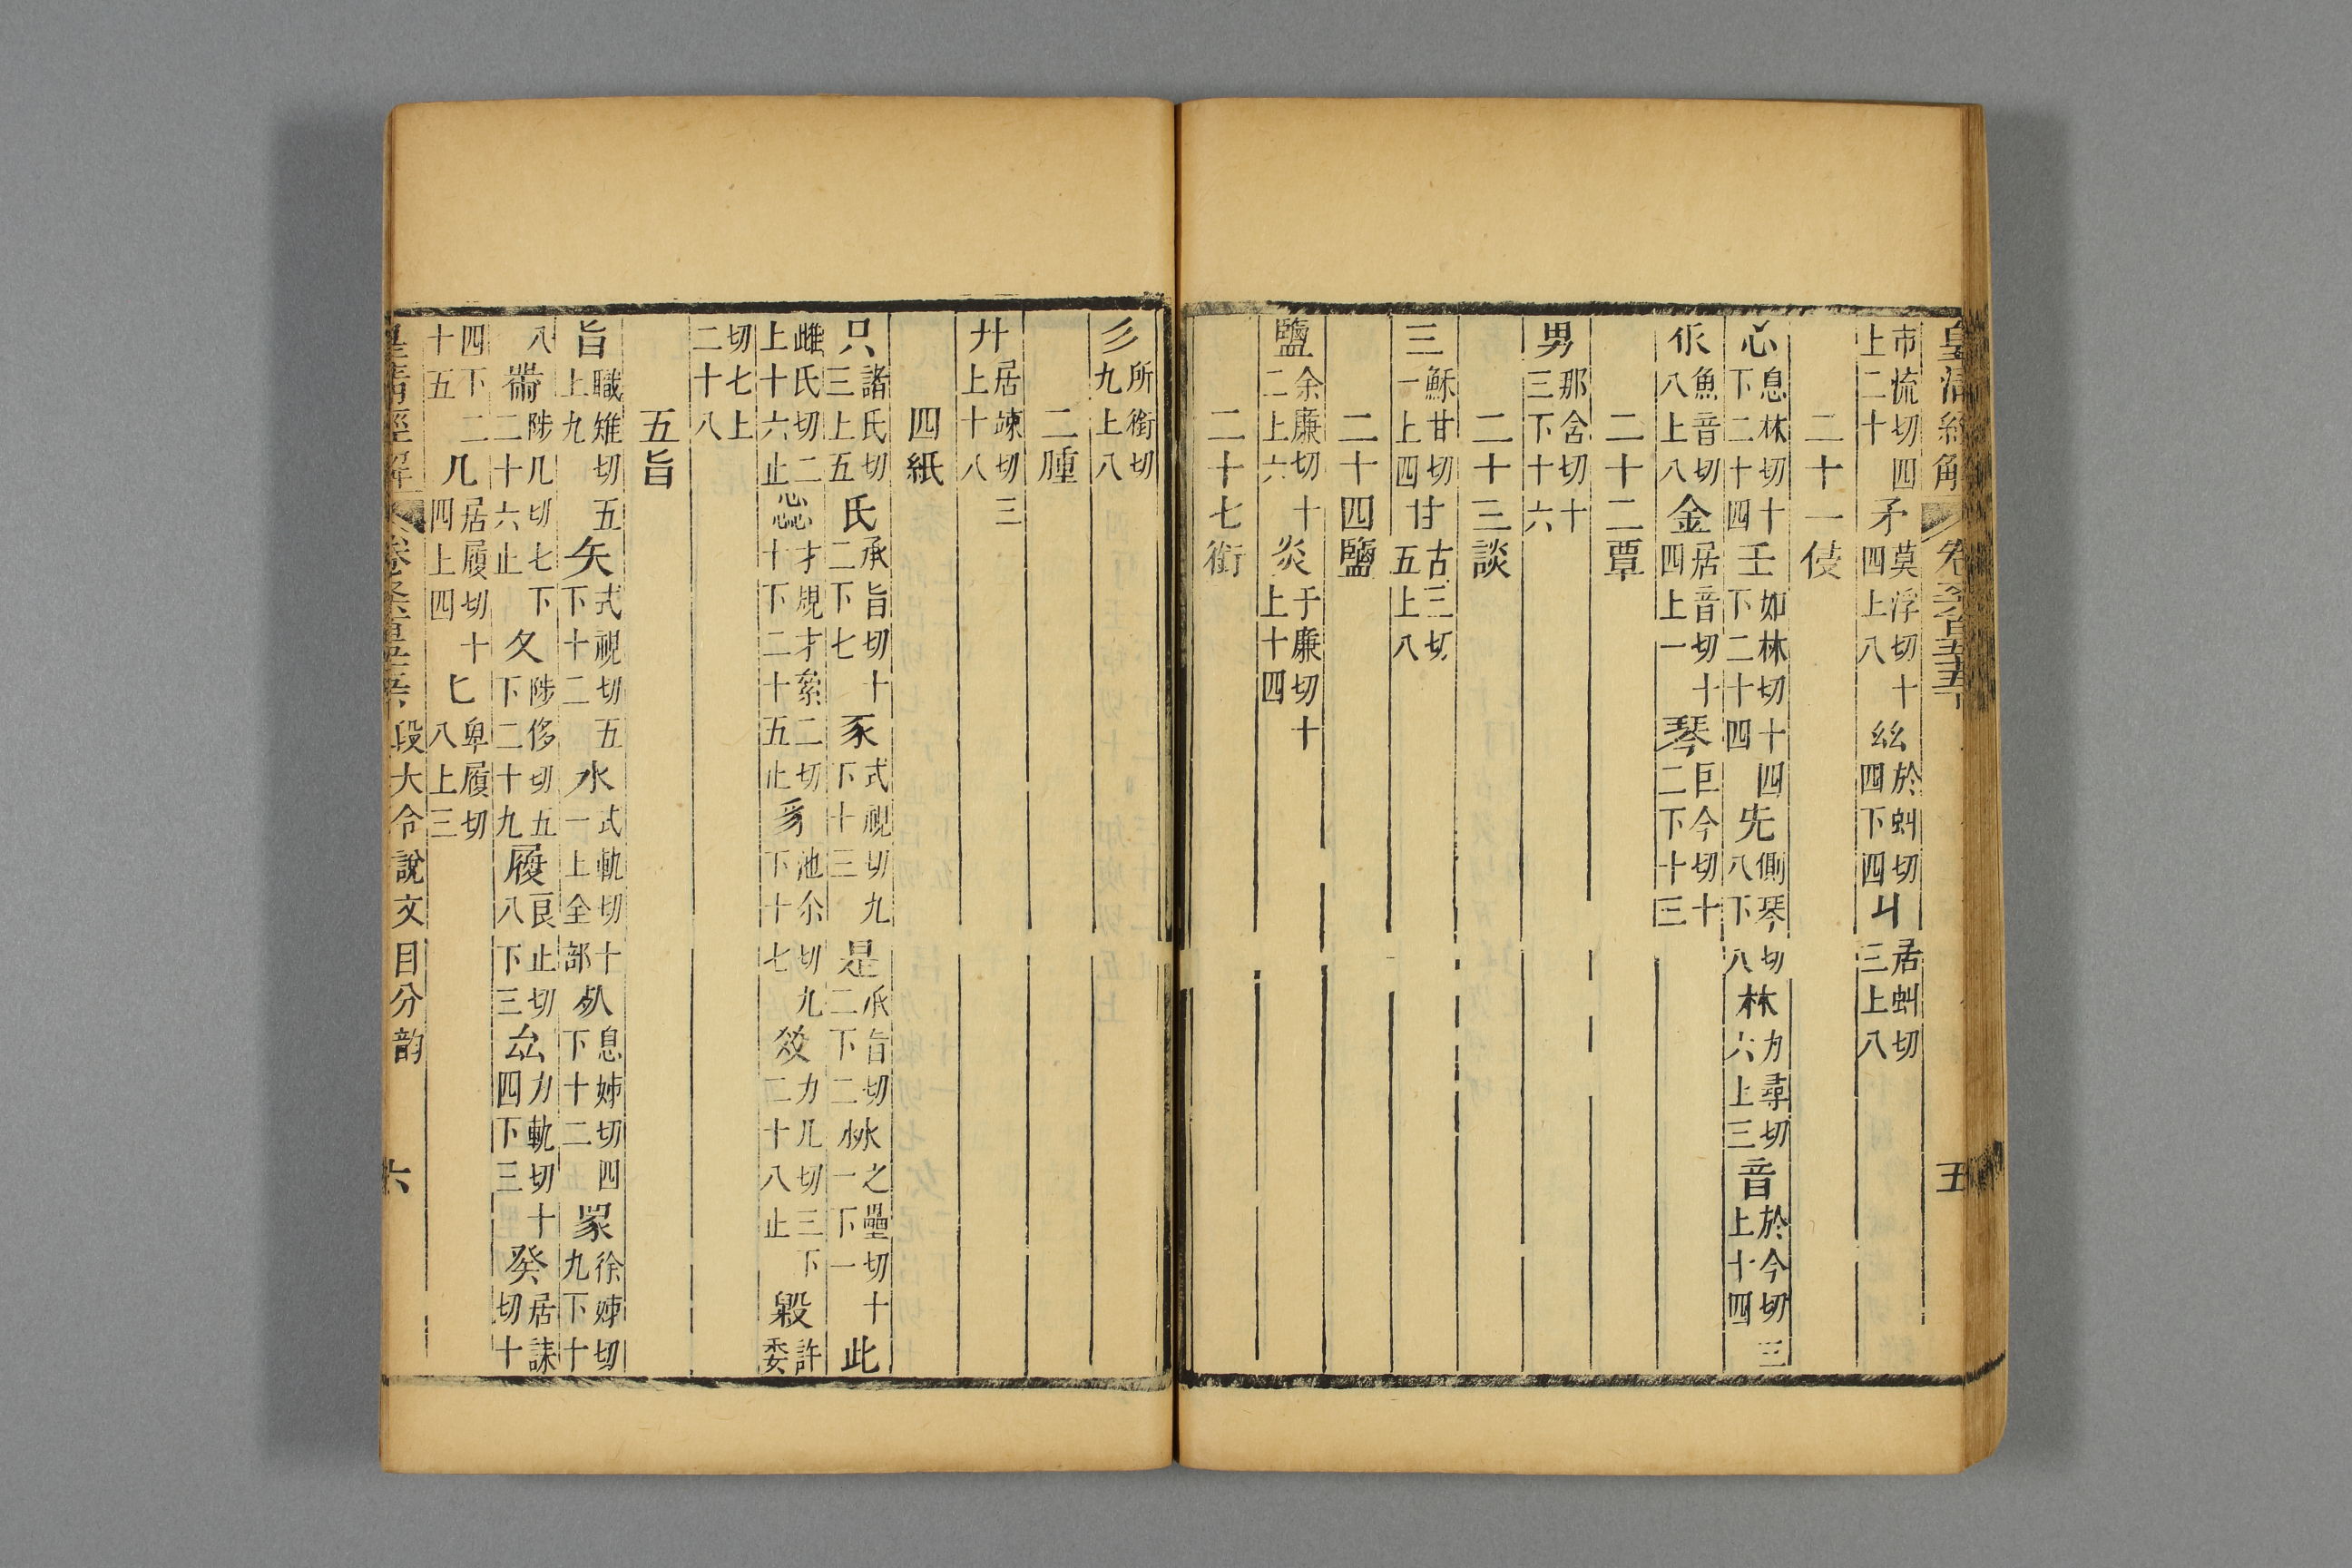 皇清經解 五
市流切四上二十矛莫浮切十四上八丝於虯切四下四丩居虯切三上八
二十一侵
心息林切十下二十四壬如林切十四下二十四兂側琴切八下八林力尋切六上三音於今切三上十四
㐺魚音切八上八金居音切十四上一琴巨今切十二下十三
二十二覃
男那含切十三下十六
二十三談
三穌甘切一上四甘古三切五上八
二十四鹽
鹽余廉切十二上六炎于廉切十上十四
二十七銜
彡所銜切九上八
二腫
廾居竦切三上十八
四紙
只諸氏切三上五氏承旨切十二下七豕式視切九下十三是承旨切二下二沝之壘切十一下一此
雌氏切二上十六止惢才規才絫二切十下二十五止豸池尒切九下十七㸚力几切三下二十八止毇許委
切七上二十八
五旨
旨職雉切五上九矢式視切五下十二水式軌切十一上全部𣦵息姊切四下十二㣇徐姊切九下十
八黹陟几切七下二十六止夂陟侈切五下二十九履良止切八下三厽力軌切十四下三癸居誄切十
四下二几居履切十四上四匕卑履切八上三十五
皇清經解 段大令說文目分韵 六